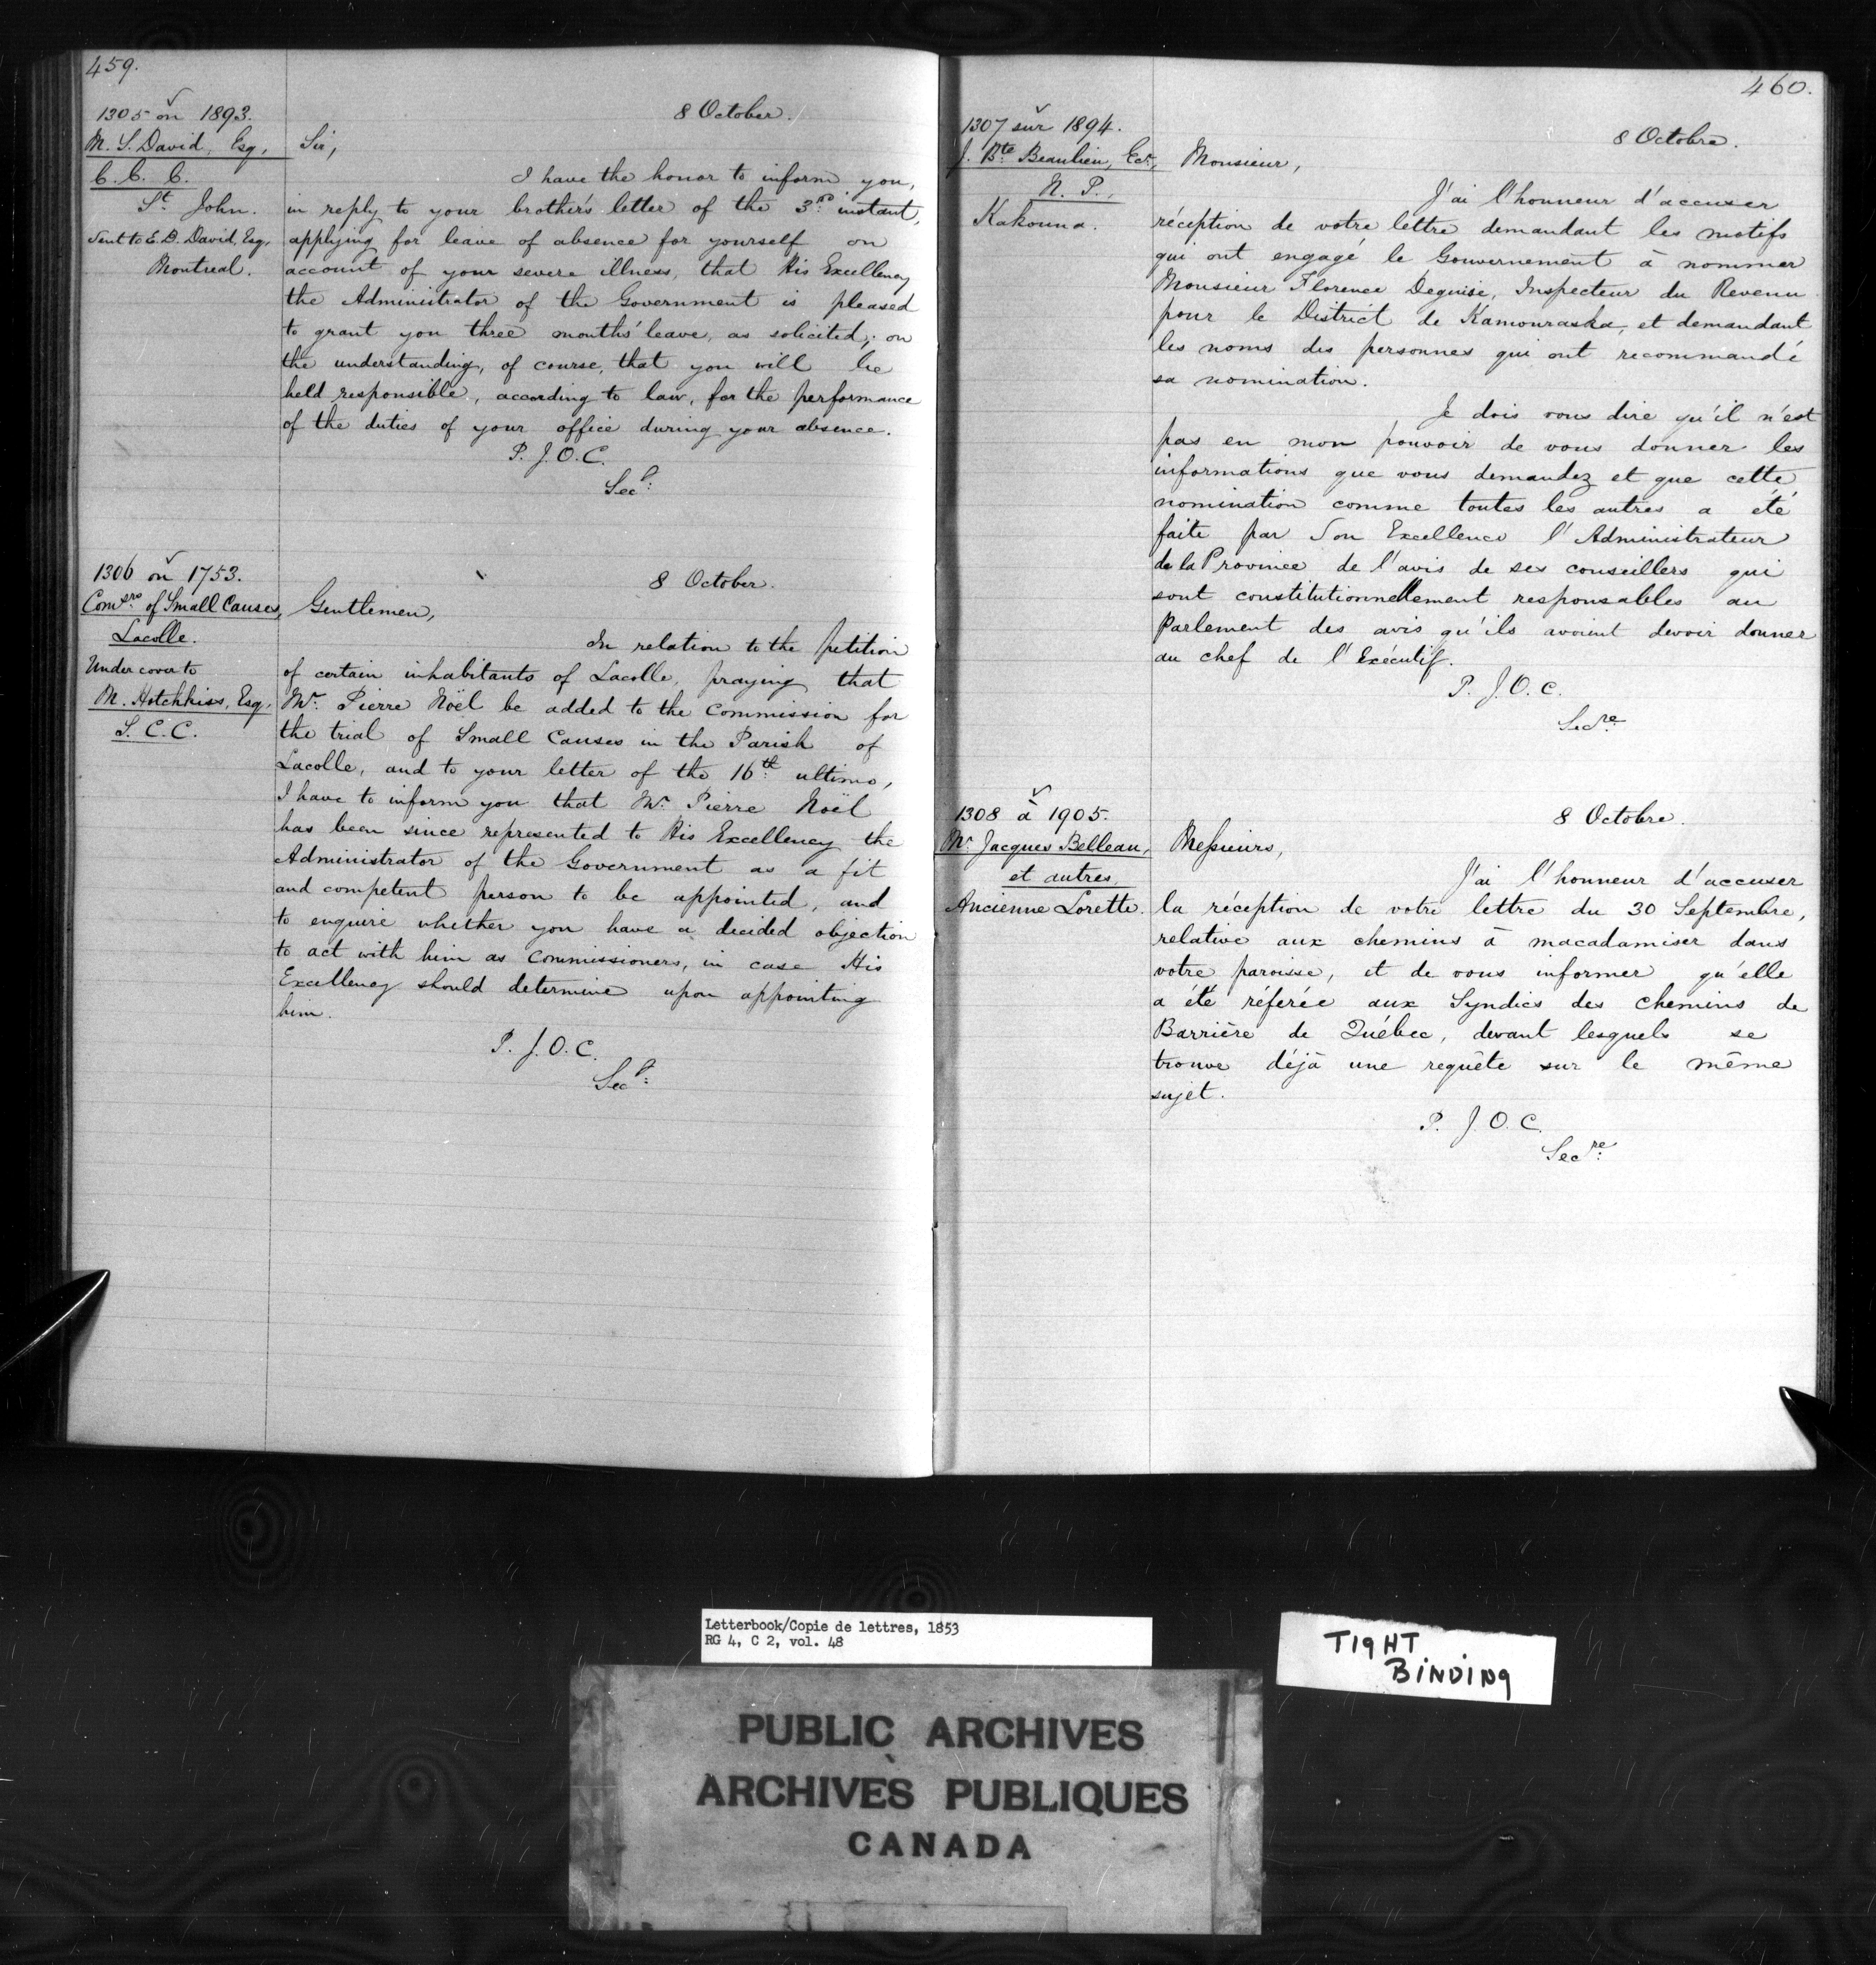 459.
1305 on 1893.
M. S. David, Esq,
C. C. C.
St. John.
Sent to E. D. David, Esq,
Montreal.
8 October.
Sir,
I have the honor to inform you,
in reply to your brother's letter of the 3rd instant,
applying for leave of absence for yourself on
account of your severe illness, that His Excellency
the Administrator of the Government is pleased
to grant you three months' leave, as solicited; on
the understanding, of course, that you will be
held responsible, according to law, for the performance
of the duties of your office during your absence.
P. J. O. C.
Secy:
1306 on 1753.
Comsrs of Small Causes,
Lacolle.
Under cover to
M. Hotchkiss, Esq,
S. C. C.
8 October.
Gentlemen,
In relation to the petition
of certain inhabitants of Lacolle, praying that
Mr. Pierre Noël be added to the Commission for
the trial of Small Causes in the Parish of
Lacolle, and to your letter of the 16th ultimo,
I have to inform you that Mr. Pierre Noël
has been since represented to His Excellency the
Administrator of the Government as a fit
and competent person to be appointed, and
to enquire whether you have a decided objection
to act with him as Commissioners, in case His
Excellency should determine upon appointing
him.
P. J. O. C.
Secy:
460.
1307 sur 1894.
J. Bte Beaulieu, Ecr,
N. P.,
Kakouna.
8 Octobre.
Monsieur,
J'ai l'honneur d'accuser
réception de votre lettre demandant les motifs
qui ont engagé le Gouvernement à nommer
Monsieur Florence Deguise, Inspecteur du Revenu
pour le District de Kamouraska, et demandant
les noms des personnes qui ont recommandé
sa nomination.
Je dois vous dire qu'il n'est
pas en mon pouvoir de vous donner les
informations que vous demandez et que cette
nomination comme toutes les autres a été
faite par Son Excellence l'Administrateur
de la Province de l'avis de ses conseillers qui
sont constitutionnellement responsables au
Parlement des avis qu'ils avoient devoir donner
au chef de l'Exécutif.
P. J. O. C.
Secre
1308 à 1905.
Mr Jacques Belleau,
et autres,
Ancienne Lorette.
8 Octobre.
Messieurs,
J'ai l'honneur d'accuser
la réception de votre lettre du 30 Septembre,
relative aux chemins à macadamiser dans
votre paroisse, et de vous informer qu'elle
a été référée aux Syndics des chemins de
Barrière de Québec, devant lesquels se
trouve déjà une requête sur le même
sujet.
P. J. O. C.
Secre:
Letterbook/Copie de lettres, 1853
RG 4, C 2, vol. 48
TIGHT
BINDING
PUBLIC ARCHIVES
ARCHIVES PUBLIQUES
CANADA